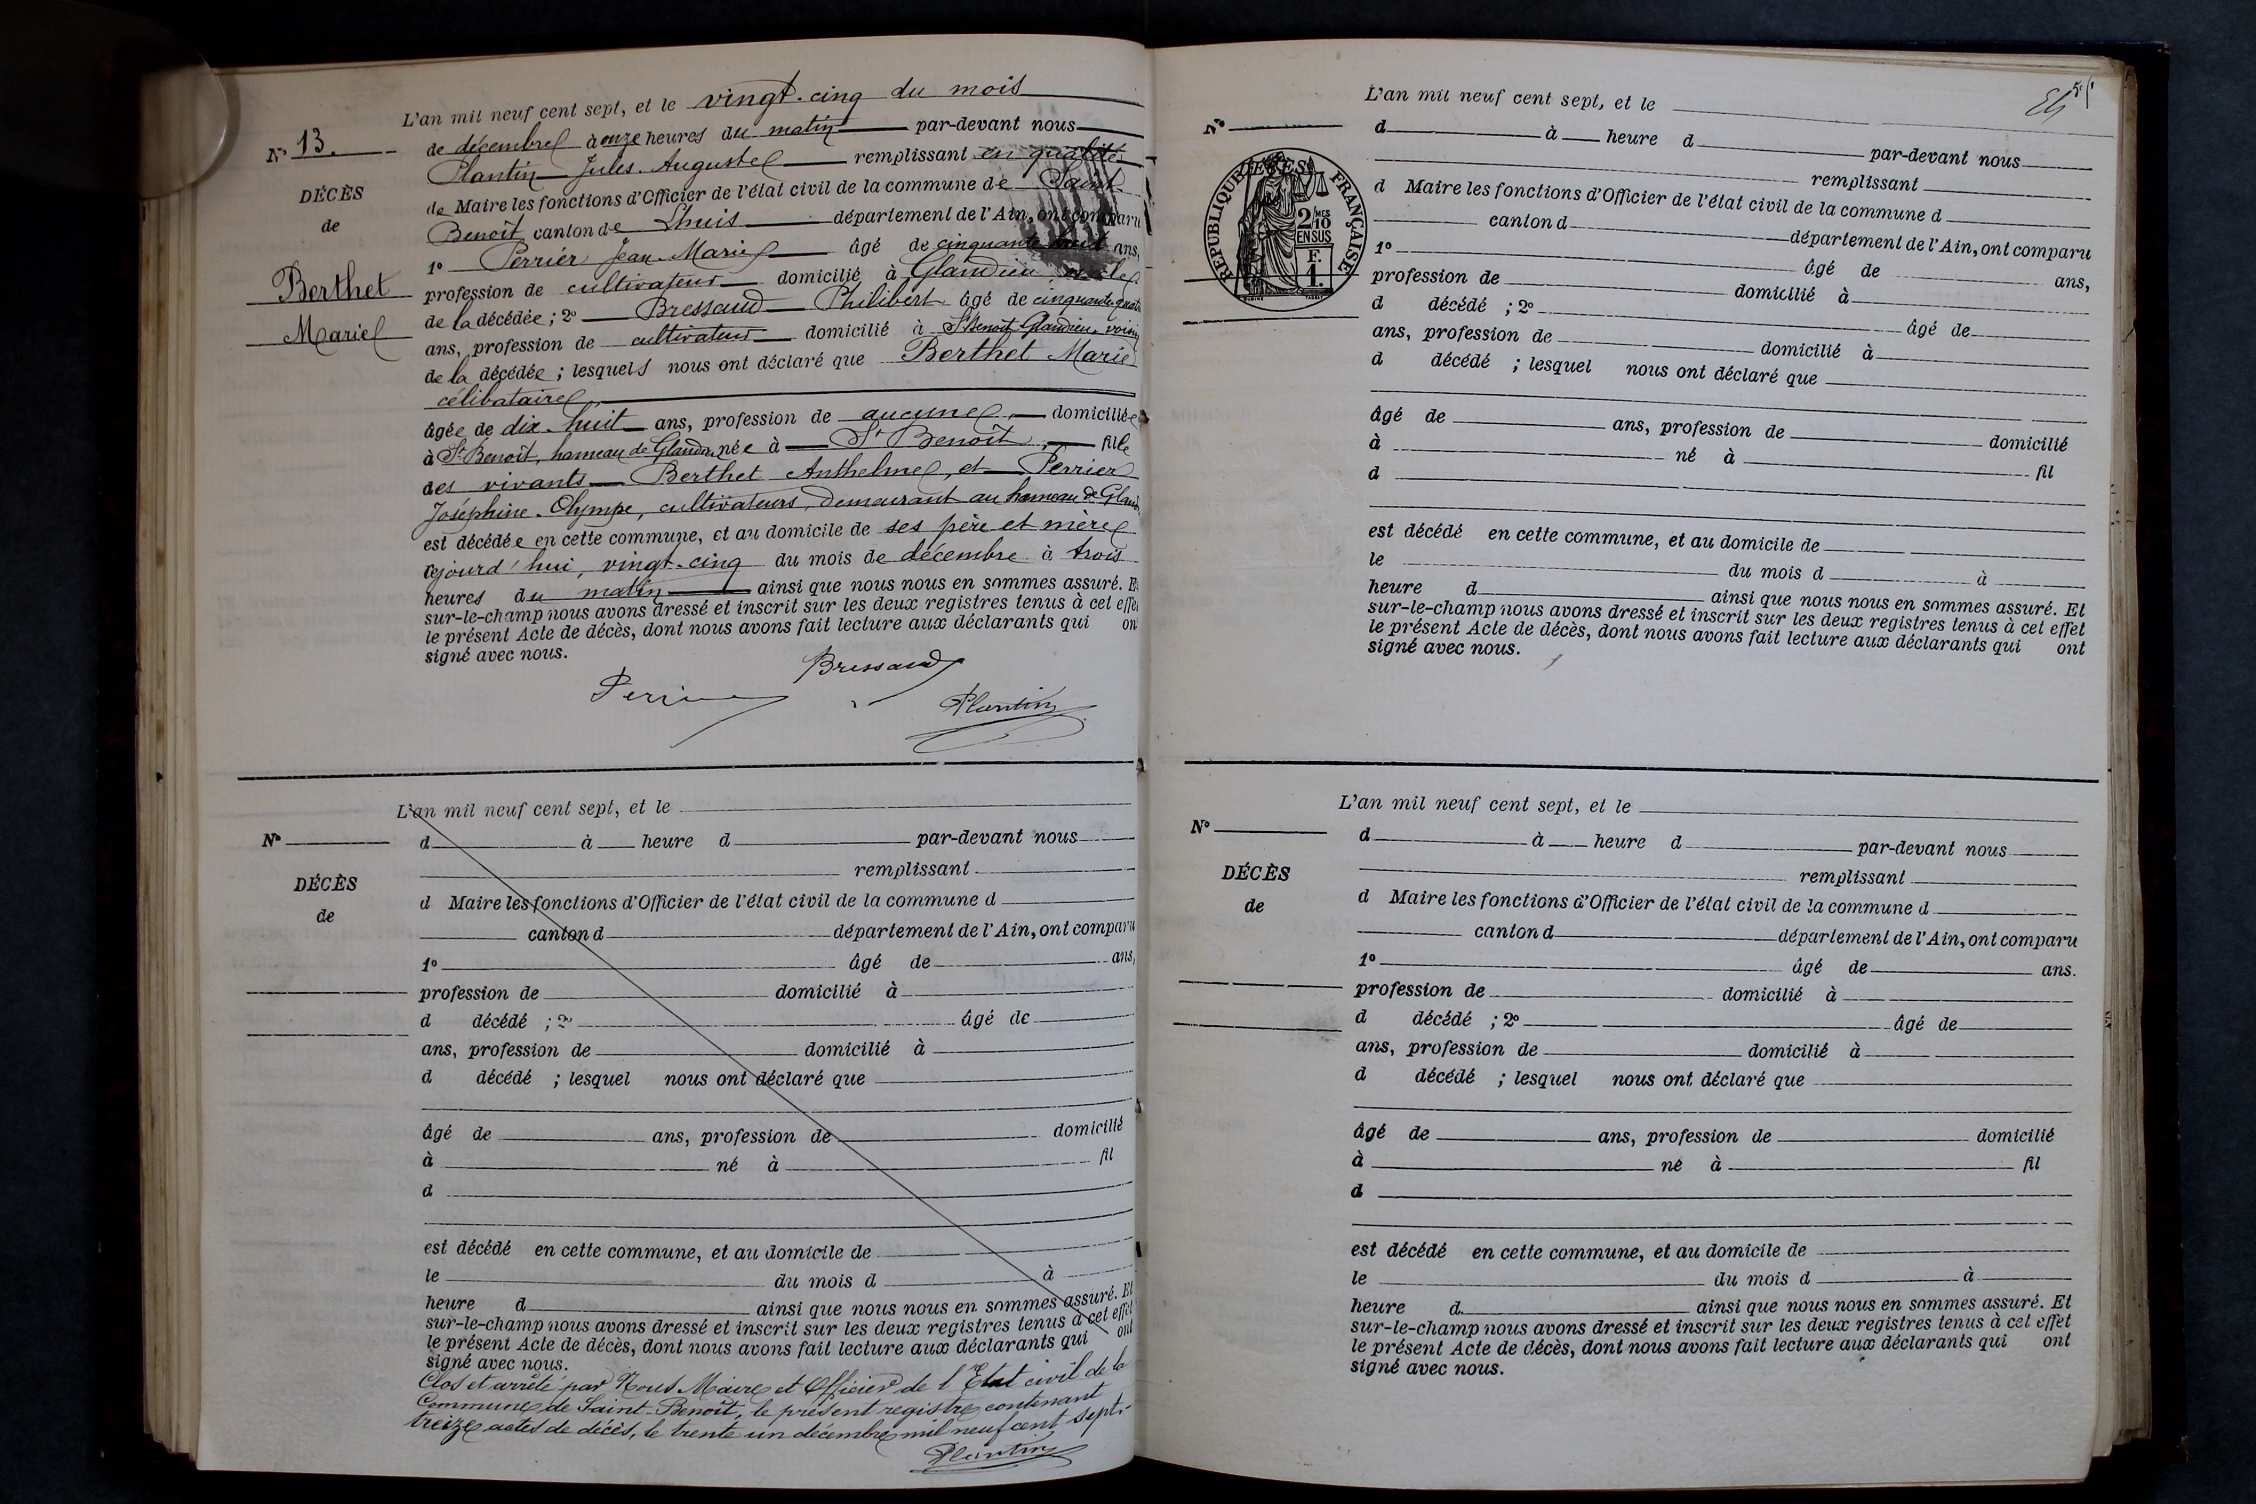 L'an mil neuf cent sept, et le vingt-cinq du mois
N° 13.
de décembre à onze heures du matin par-devant nous
Plantin Jules Auguste remplissant en qualité
DÉCÈS
de
Berthet
Marie
de Maire les fonctions d'Officier de l'état civil de la commune de Saint
Benoît canton de Lhuis département de l'Ain, ont comparu
1° Perrier Jean-Marie âgé de cinquante ans,
profession de cultivateur domicilié à Glandieu
de la décédée ; 2° Bressaud Philibert âgé de cinquante quatre
ans, profession de cultivateur domicilié à St Benoît Glandieu voisin
de la décédée ; lesquels nous ont déclaré que Berthet Marie
célibataire
âgée de dix-huit ans, profession de aucune domiciliée
à St Benoît, hameau de Gland. née à St Benoît fille
des vivants Berthet Anthelme, et Perrier
Joséphine-Olympe, cultivateurs, demeurant au hameau de Gland
est décédée en cette commune, et au domicile de ses père et mère
cejourd'hui, vingt-cinq du mois de décembre à trois
heures du matin ainsi que nous nous en sommes assuré. E
sur-le-champ nous avons dressé et inscrit sur les deux registres tenus à cet effe
le présent Acte de décès, dont nous avons fait lecture aux déclarants qui on
signé avec nous.
Bressaud
Perrier
Plantin
L'an mil neuf cent sept, et le
N°
d à heure d par-devant nous
remplissant
DÉCÈS
de
d Maire les fonctions d'Officier de l'état civil de la commune d
canton d département de l'Ain, ont comparu
1° âgé de ans,
profession de domicilié à
d décédé ; 2° âgé de
ans, profession de domicilié à
d décédé ; lesquel nous ont déclaré que
âgé de ans, profession de domicilié
à né à fil
d
est décédé en cette commune, et au domicile de
le du mois d à
heure d ainsi que nous nous en sommes assuré. Et
sur-le-champ nous avons dressé et inscrit sur les deux registres tenus à cet effet
le présent Acte de décès, dont nous avons fait lecture aux déclarants qui ont
signé avec nous.
Clos et arrêté par Nous Maire et Officier de l'Etat civil de la
Commune de Saint-Benoît, le présent registre contenant
treize actes de décès, le trente un décembre mil neuf cent sept.
Plantin
L'an mil neuf cent sept, et le
N°
d à heure d par-devant nous
remplissant
RÉPUBLIQUE FRANÇAISE
2/10 MES
EN SUS
F.
1.
d Maire les fonctions d'Officier de l'état civil de la commune d
canton d département de l'Ain, ont comparu
1° âgé de ans,
profession de domicilié à
d décédé ; 2° âgé de
ans, profession de domicilié à
d décédé ; lesquel nous ont déclaré que
âgé de ans, profession de domicilié
à né à fil
d
est décédé en cette commune, et au domicile de
le du mois d à
heure d ainsi que nous nous en sommes assuré. Et
sur-le-champ nous avons dressé et inscrit sur les deux registres tenus à cet effet
le présent Acte de décès, dont nous avons fait lecture aux déclarants qui ont
signé avec nous.
L'an mil neuf cent sept, et le
N°
d à heure d par-devant nous
remplissant
DÉCÈS
de
d Maire les fonctions d'Officier de l'état civil de la commune d
canton d département de l'Ain, ont comparu
1° âgé de ans.
profession de domicilié à
d décédé ; 2° âgé de
ans, profession de domicilié à
d décédé ; lesquel nous ont déclaré que
âgé de ans, profession de domicilié
à né à fil
d
est décédé en cette commune, et au domicile de
le du mois d à
heure d ainsi que nous nous en sommes assuré. Et
sur-le-champ nous avons dressé et inscrit sur les deux registres tenus à cet effet
le présent Acte de décès, dont nous avons fait lecture aux déclarants qui ont
signé avec nous.